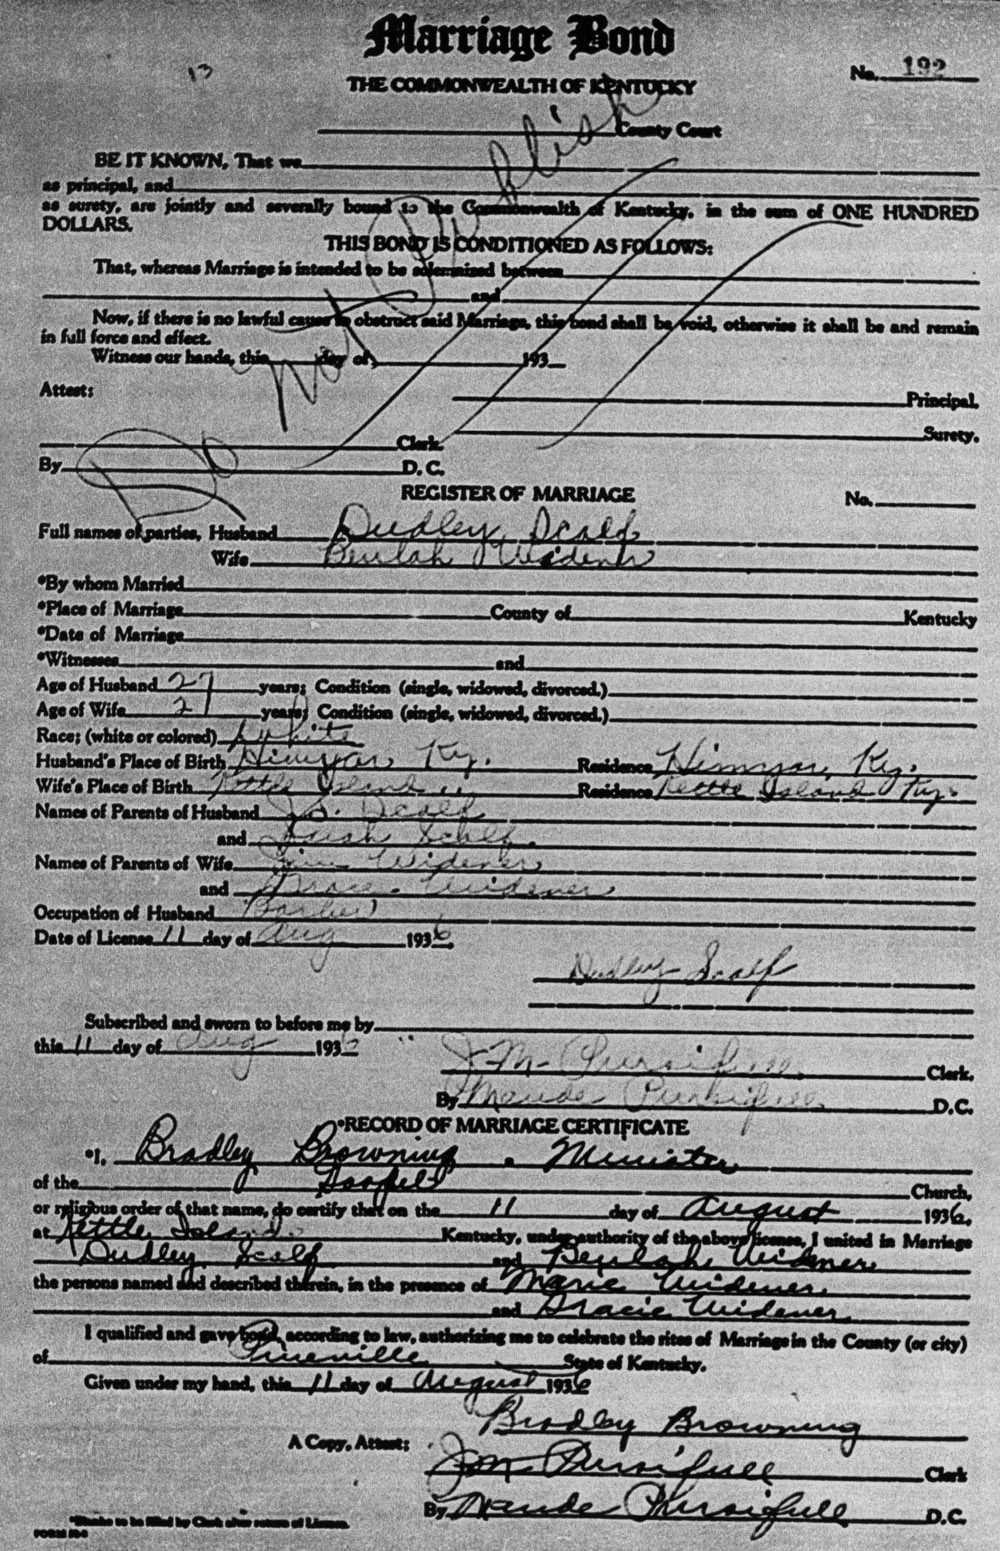 Marriage Bond
13
No. 192
THE COMMONWEALTH OF KENTUCKY
County Court
Do Not Publish
BE IT KNOWN, That we
as principal, and
as surety, are jointly and severally bound to the Commonwealth of Kentucky, in the sum of ONE HUNDRED
DOLLARS.
THIS BOND IS CONDITIONED AS FOLLOWS:
That, whereas Marriage is intended to be solemnized between
and
Now, if there is no lawful cause to obstruct said Marriage, this bond shall be void, otherwise it shall be and remain
in full force and effect.
Witness our hands, this day of, 193
Attest:
Principal.
Surety.
Clerk.
By D. C.
REGISTER OF MARRIAGE No.
Full names of parties, Husband Dudley Scalf
Wife Beulah Widener
*By whom Married
*Place of Marriage County of Kentucky
*Date of Marriage
*Witnesses and
Age of Husband 27 years; Condition (single, widowed, divorced.)
Age of Wife 21 years; Condition (single, widowed, divorced.)
Race; (white or colored) white
Husband's Place of Birth Himyar, Ky. Residence Himyar, Ky.
Wife's Place of Birth Kettle Island " Residence Kettle Island Ky.
Names of Parents of Husband J.S. Scalf
and Scalf
Names of Parents of Wife Jim Widener
and Grace Widener
Occupation of Husband Barber
Date of License 11 day of Aug 1936.
Dudley Scalf
Subscribed and sworn to before me by
this 11 day of Aug 1936
J.M. Pursifull Clerk.
By Maude Pursifull D.C.
*RECORD OF MARRIAGE CERTIFICATE
*I, Bradley Browning, Minister
of the Gospel Church,
or religious order of that name, do certify that on the 11 day of August 1936,
at Kettle Island. Kentucky, under authority of the above license, I united in Marriage
Dudley Scalf and Beulah Widener
the persons named and described therein, in the presence of Marie Widener
and Gracie Widener
I qualified and gave bond, according to law, authorizing me to celebrate the rites of Marriage in the County (or city)
of Pineville State of Kentucky.
Given under my hand, this 11 day of August 1936
Bradley Browning
A Copy, Attest: J.M. Pursifull Clerk
By Maude Pursifull D.C.
*Blanks to be filled by Clerk after return of License.